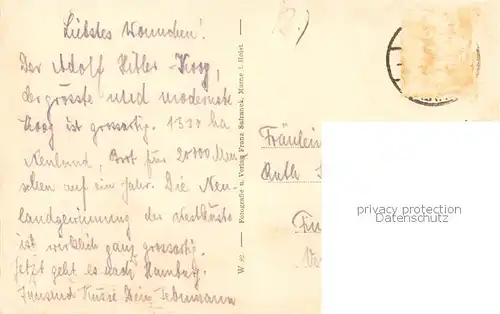 Liebstes Wonnchen!
Der Adolf Hitler-Koog,
der grösste und modernste
Koog ist grossartig. 1300 ha
Neuland, Brot für 20000 Men-
schen auf ein Jahr. Die Neu-
landgewinnung der Westküste
ist wirklich ganz grossartig.
Jetzt geht es nach Hamburg.
Tausend Küsse Dein
W 82. Fotografie u. Verlag Franz Safranek, Marne i. Holst.
Fräulein
Ruth
privacy protection
Datenschutz